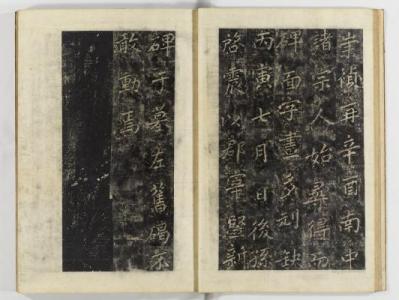 崇禎再辛酉南中
諸宗人始尋得而
碑面字畫多刓缺
丙寅七月日後孫
啓震以郡宰竪新
碑于墓左舊碣不
敢動焉